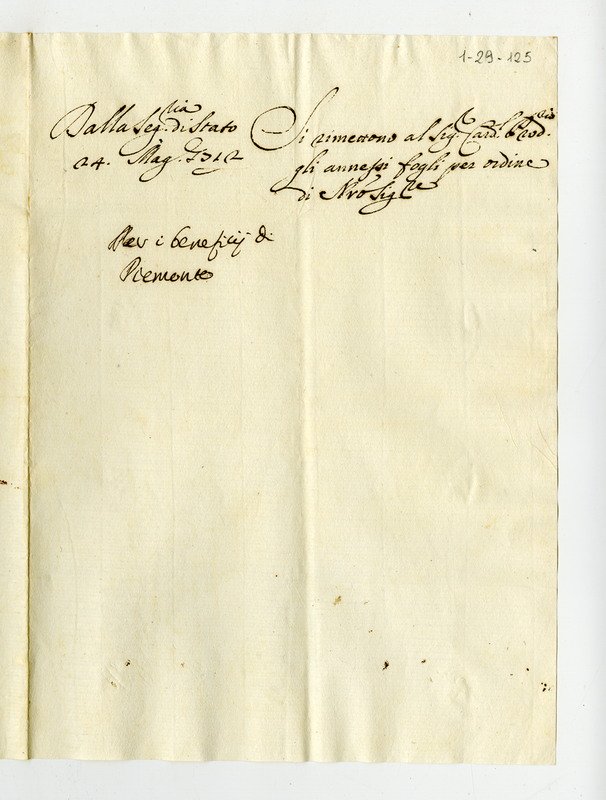 1-29-125
Dalla Seg.ria di Stato
24. Mag.
Si rimettono al Sig.r Card.l Prod.rio
gli annessi fogli per ordine
di Nro Sig.re
Per i beneficij di
Piemonte